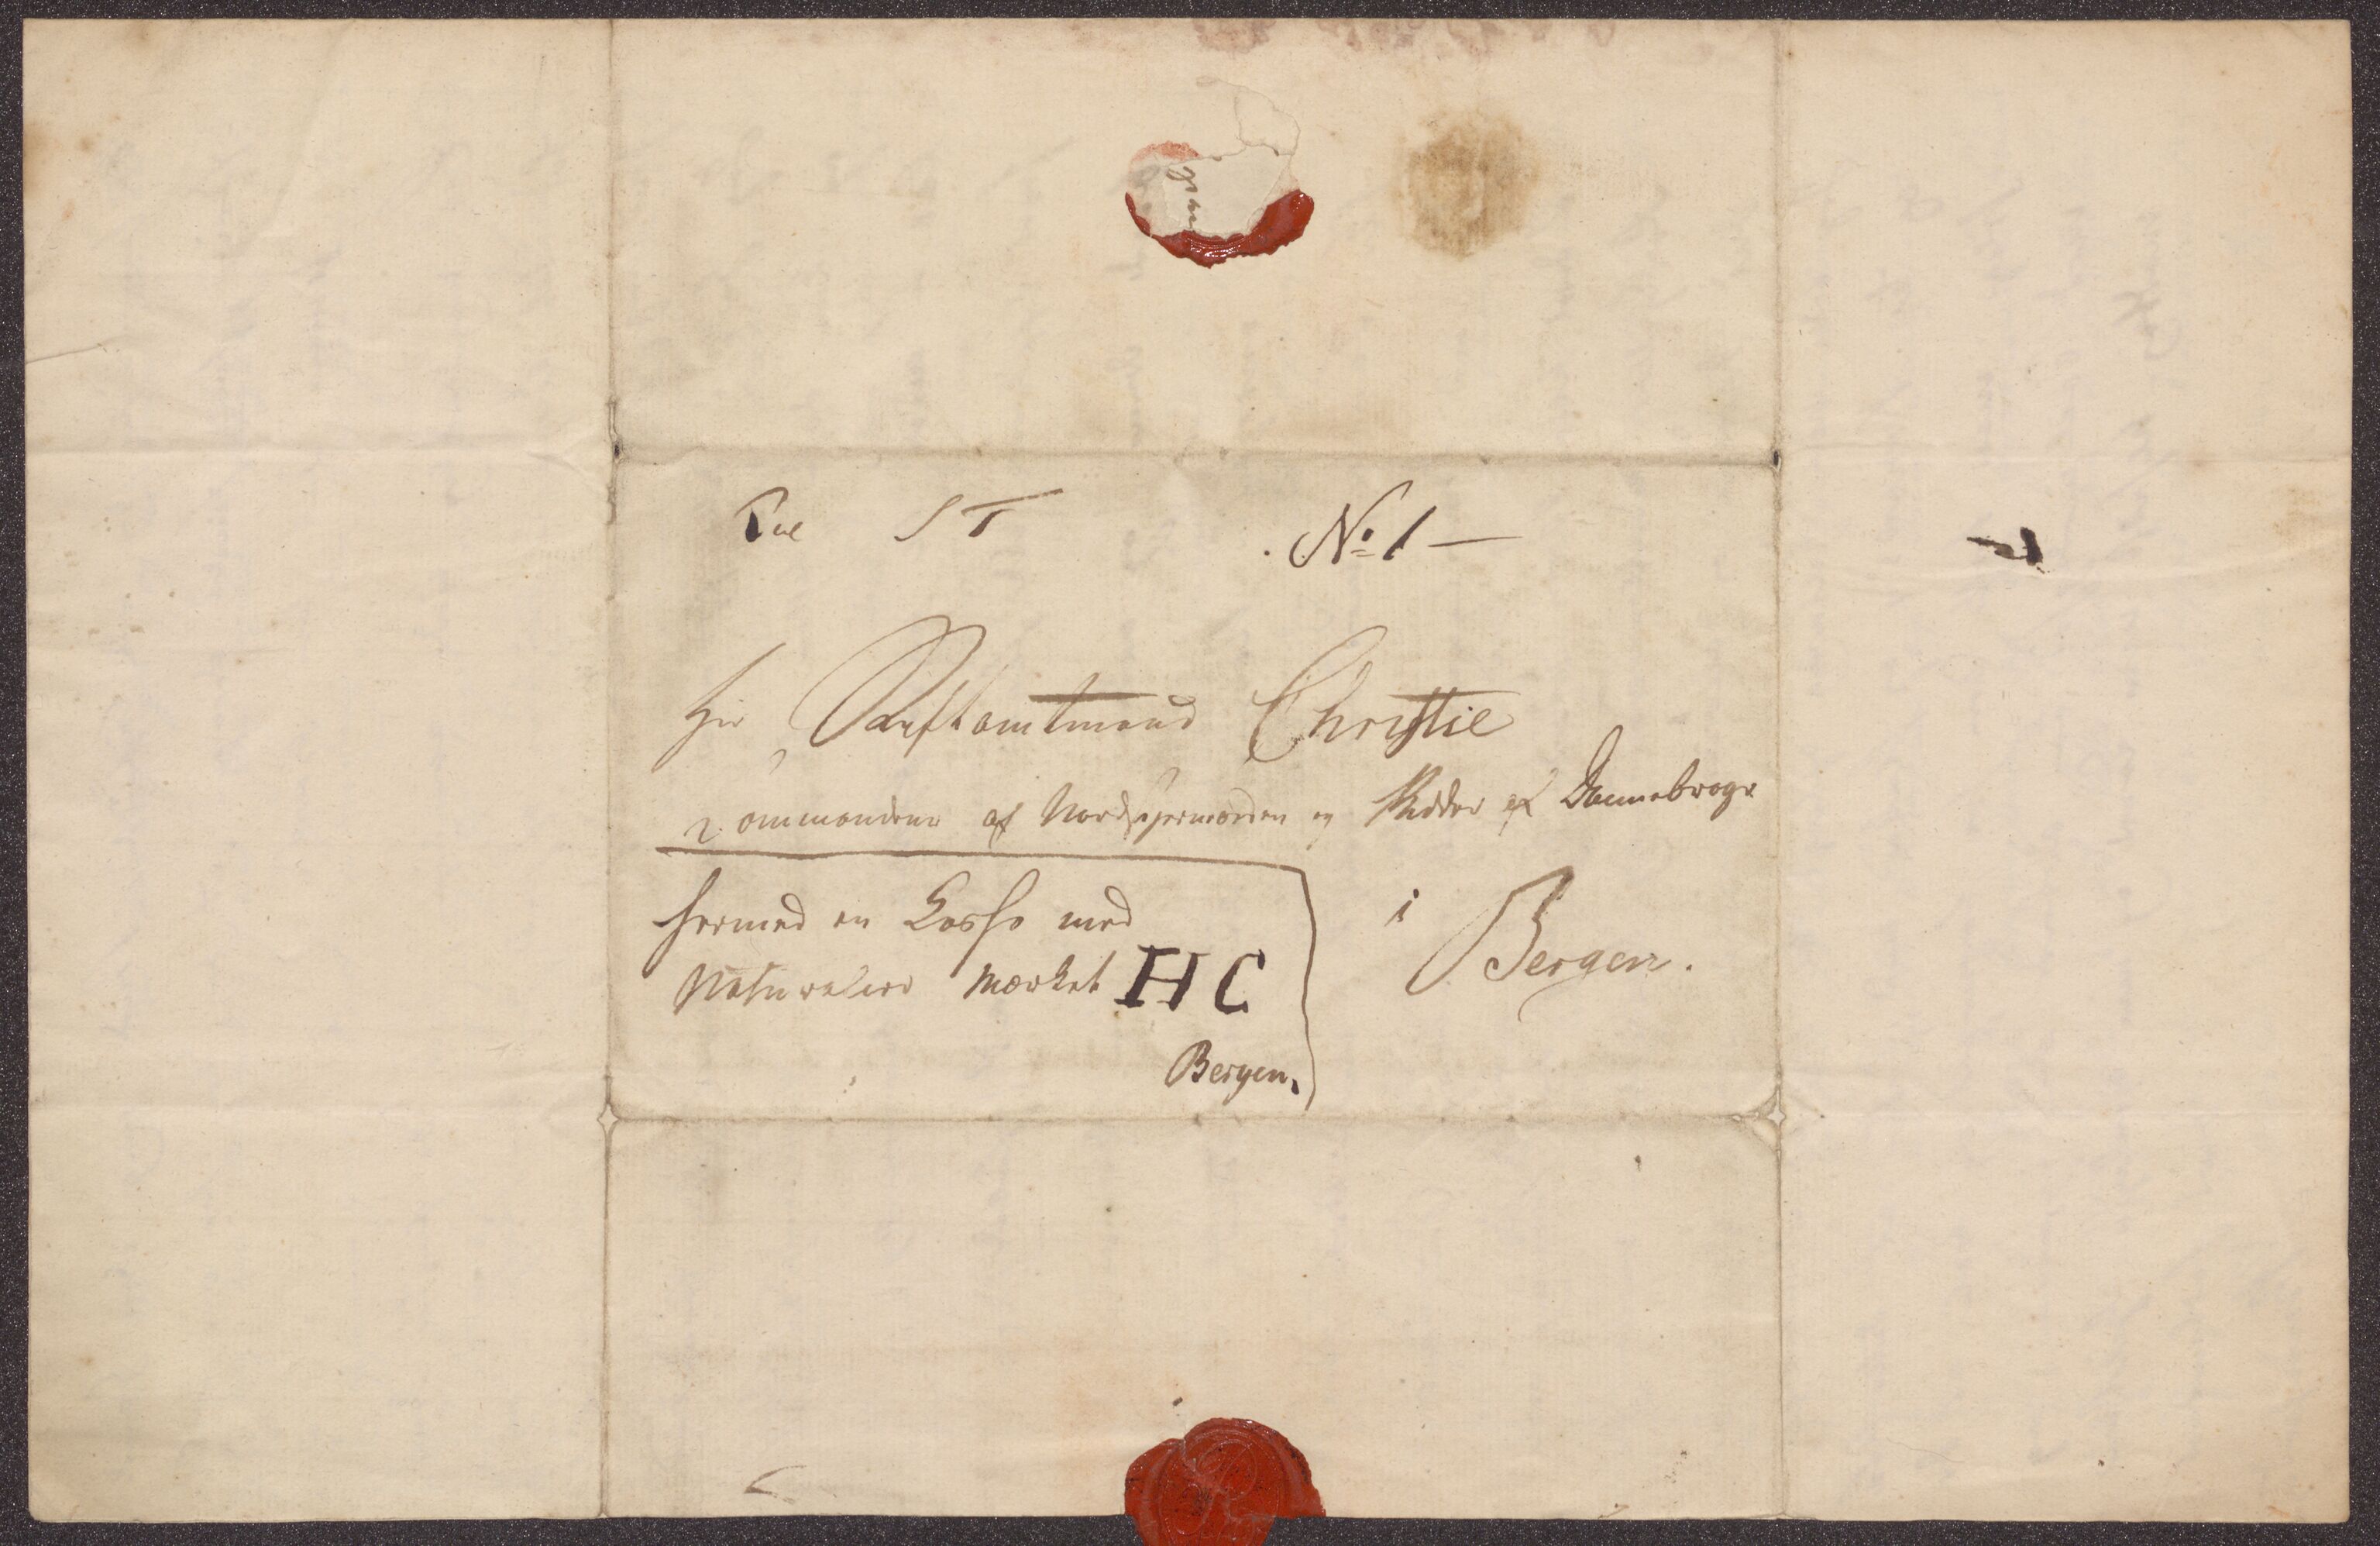 Til ST
No 1 —
Hr Stiftamtmand Christie
Commandeur af Nordstjernorden og Ridder af Dannebroge
i Bergen.
hermed en Kasse med
Naturalier mærket HC
Bergen.